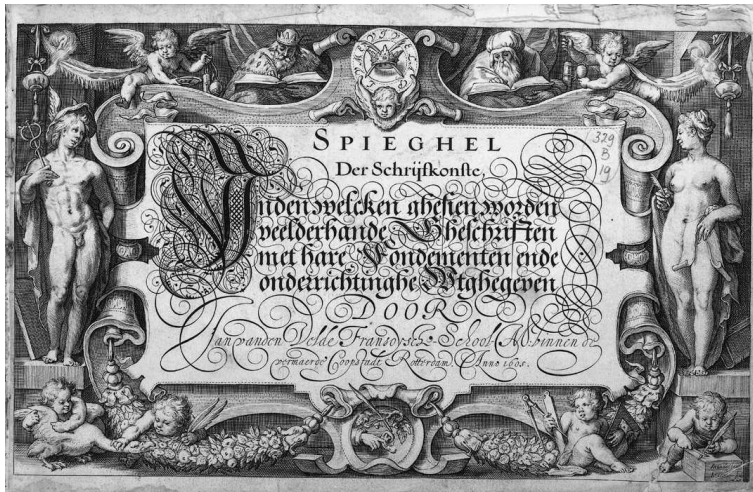 SPIEGHEL
Der Schrijfkonste,
Inden welcken ghesien worden
veelderhande Gheschriften
met hare Fondementen ende
onderrichtinghe Wtghegeven
DOOR
Jan vanden Velde Fransoysche School Mr. binnen de
vermaerde Coopstadt Rotterdam Anno 1605.
329
B
19